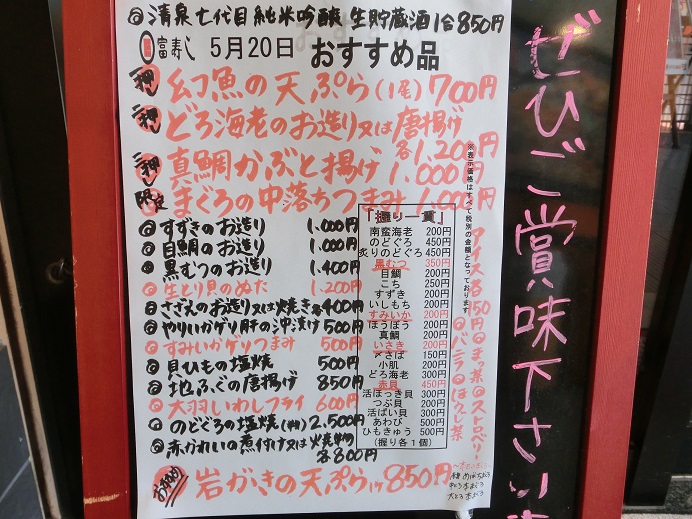 ◎清泉七代目純米吟醸 生貯蔵酒1合850円
富寿し 5月20日 おすすめ品
一押 幻魚の天ぷら(1尾)700円
二押 どろ海老のお造り又は唐揚げ
各1,200円
三押 真鯛かぶと揚げ 1,000円
限定 まぐろの中落ちつまみ 1,000円
◎すずきのお造り 1,000円
◎目鯛のお造り 1,000円
◎黒むつのお造り 1,400円
◎生とり貝のぬた 1,200円
◎さざえのお造り又は焼き各400円
◎やりいかゲソ肝の沖漬け500円
◎すみいかゲソつまみ 500円
◎貝ひもの塩焼 500円
◎地ふぐの唐揚げ 850円
◎大羽いわしフライ 600円
◎のどぐろの塩焼 2,500円
◎赤かれいの煮付け又は焼物
各800円
おすすめ 岩がきの天ぷら1ケ850円
「握り一貫」
南蛮海老 200円
のどぐろ 450円
炙りのどぐろ 450円
黒むつ 350円
目鯛 200円
こち 250円
すずき 200円
いしもち 200円
すみいか 200円
ほうぼう 200円
真鯛 200円
いさき 200円
〆さば 150円
小肌 200円
どろ海老 300円
赤貝 450円
活ほっき貝 300円
つぶ貝 200円
活ばい貝 300円
あわび 500円
ひもきゅう 500円
(握り各1個)
※表示価格はすべて税別の金額となっております
アイス各150円
◎まっ茶◎ストロベリー
◎バニラ◎ほうじ茶
ぜひご賞味下さい